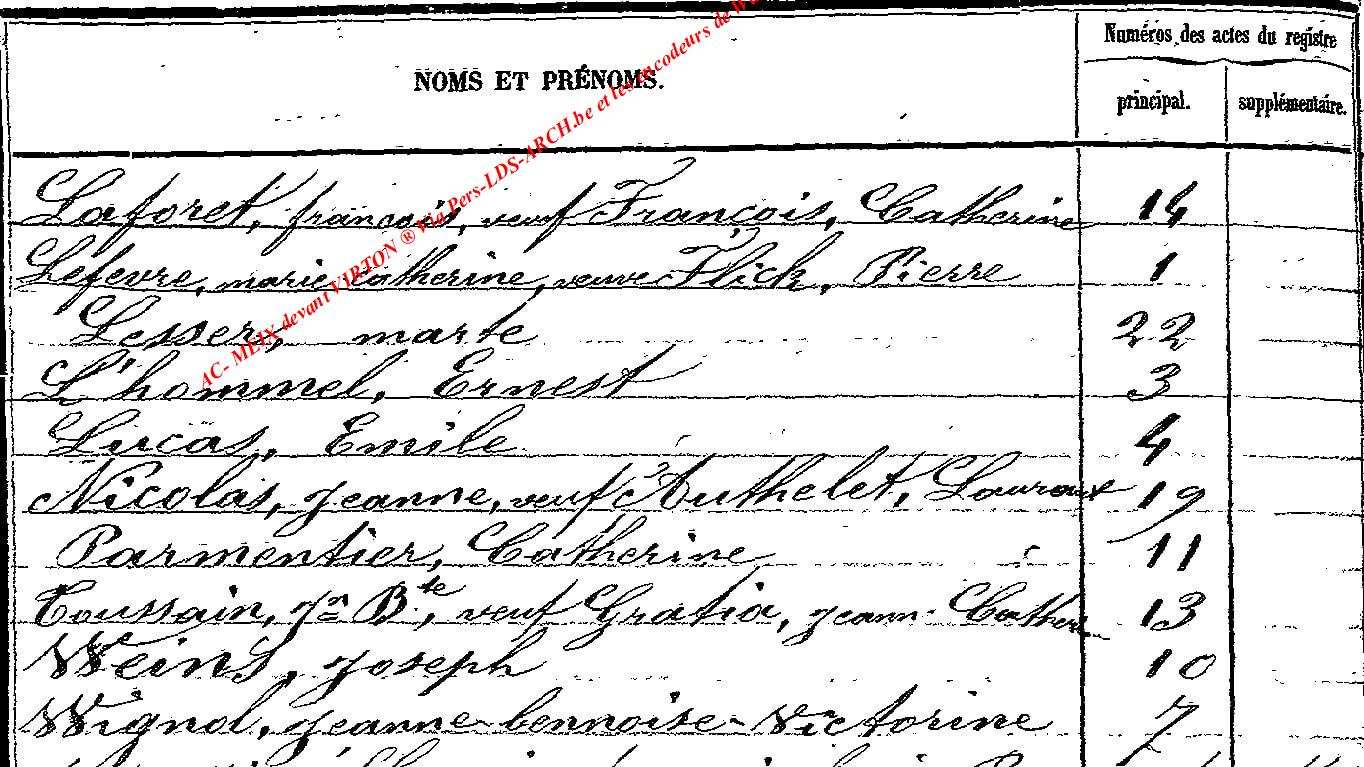 Numéros des actes du registre
NOMS ET PRÉNOMS.
principal. supplémentaire.
AC- MEIX devant VIRTON ® Via Pers-LDS-ARCH.be et les encodeurs de
Laforet, françois, veuf François, Catherine 14
Lefevre, marie catherine, veuve Flick, Pierre 1
Lesser, marie 22
L'hommel, Ernest 3
Lucas, Emile 4
Nicolas, Jeanne, veuf Authelet, Laurent 19
Parmentier, Catherine 11
Toussain, Jn Bte, veuf Gratia, Jeann Cather 13
Weins, Joseph 10
Wignol, Jeanne-bennoise-Victorine 7